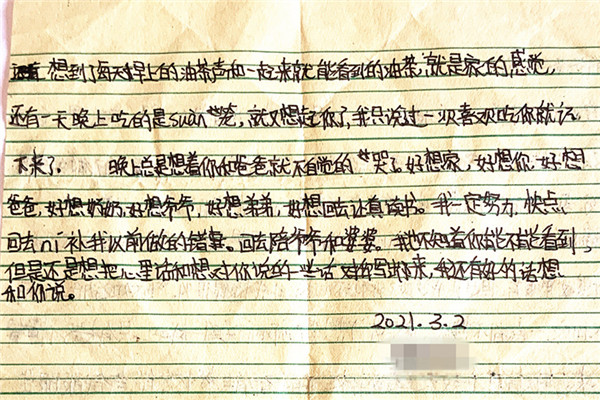 想到了每天早上的油茶声和一起来就能看到的油茶,就是家的感觉,
还有一天晚上吃的是suàn笼,就又想起你了,我只说过一次喜欢吃你就记
下来了. 晚上总是想着你和爸爸就不自觉的哭了.好想家,好想你,好想
爸爸,好想奶奶,好想爷爷,好想弟弟,好想回去认真读书。我一定努力,快点
回去nì补我以前做的错事。回去陪爷爷和婆婆。我也不知着你能不能看到,
但是还是想把心里话和想对你说的一些话对你写下来,我还有好的话想
和你说。
2021.3.2